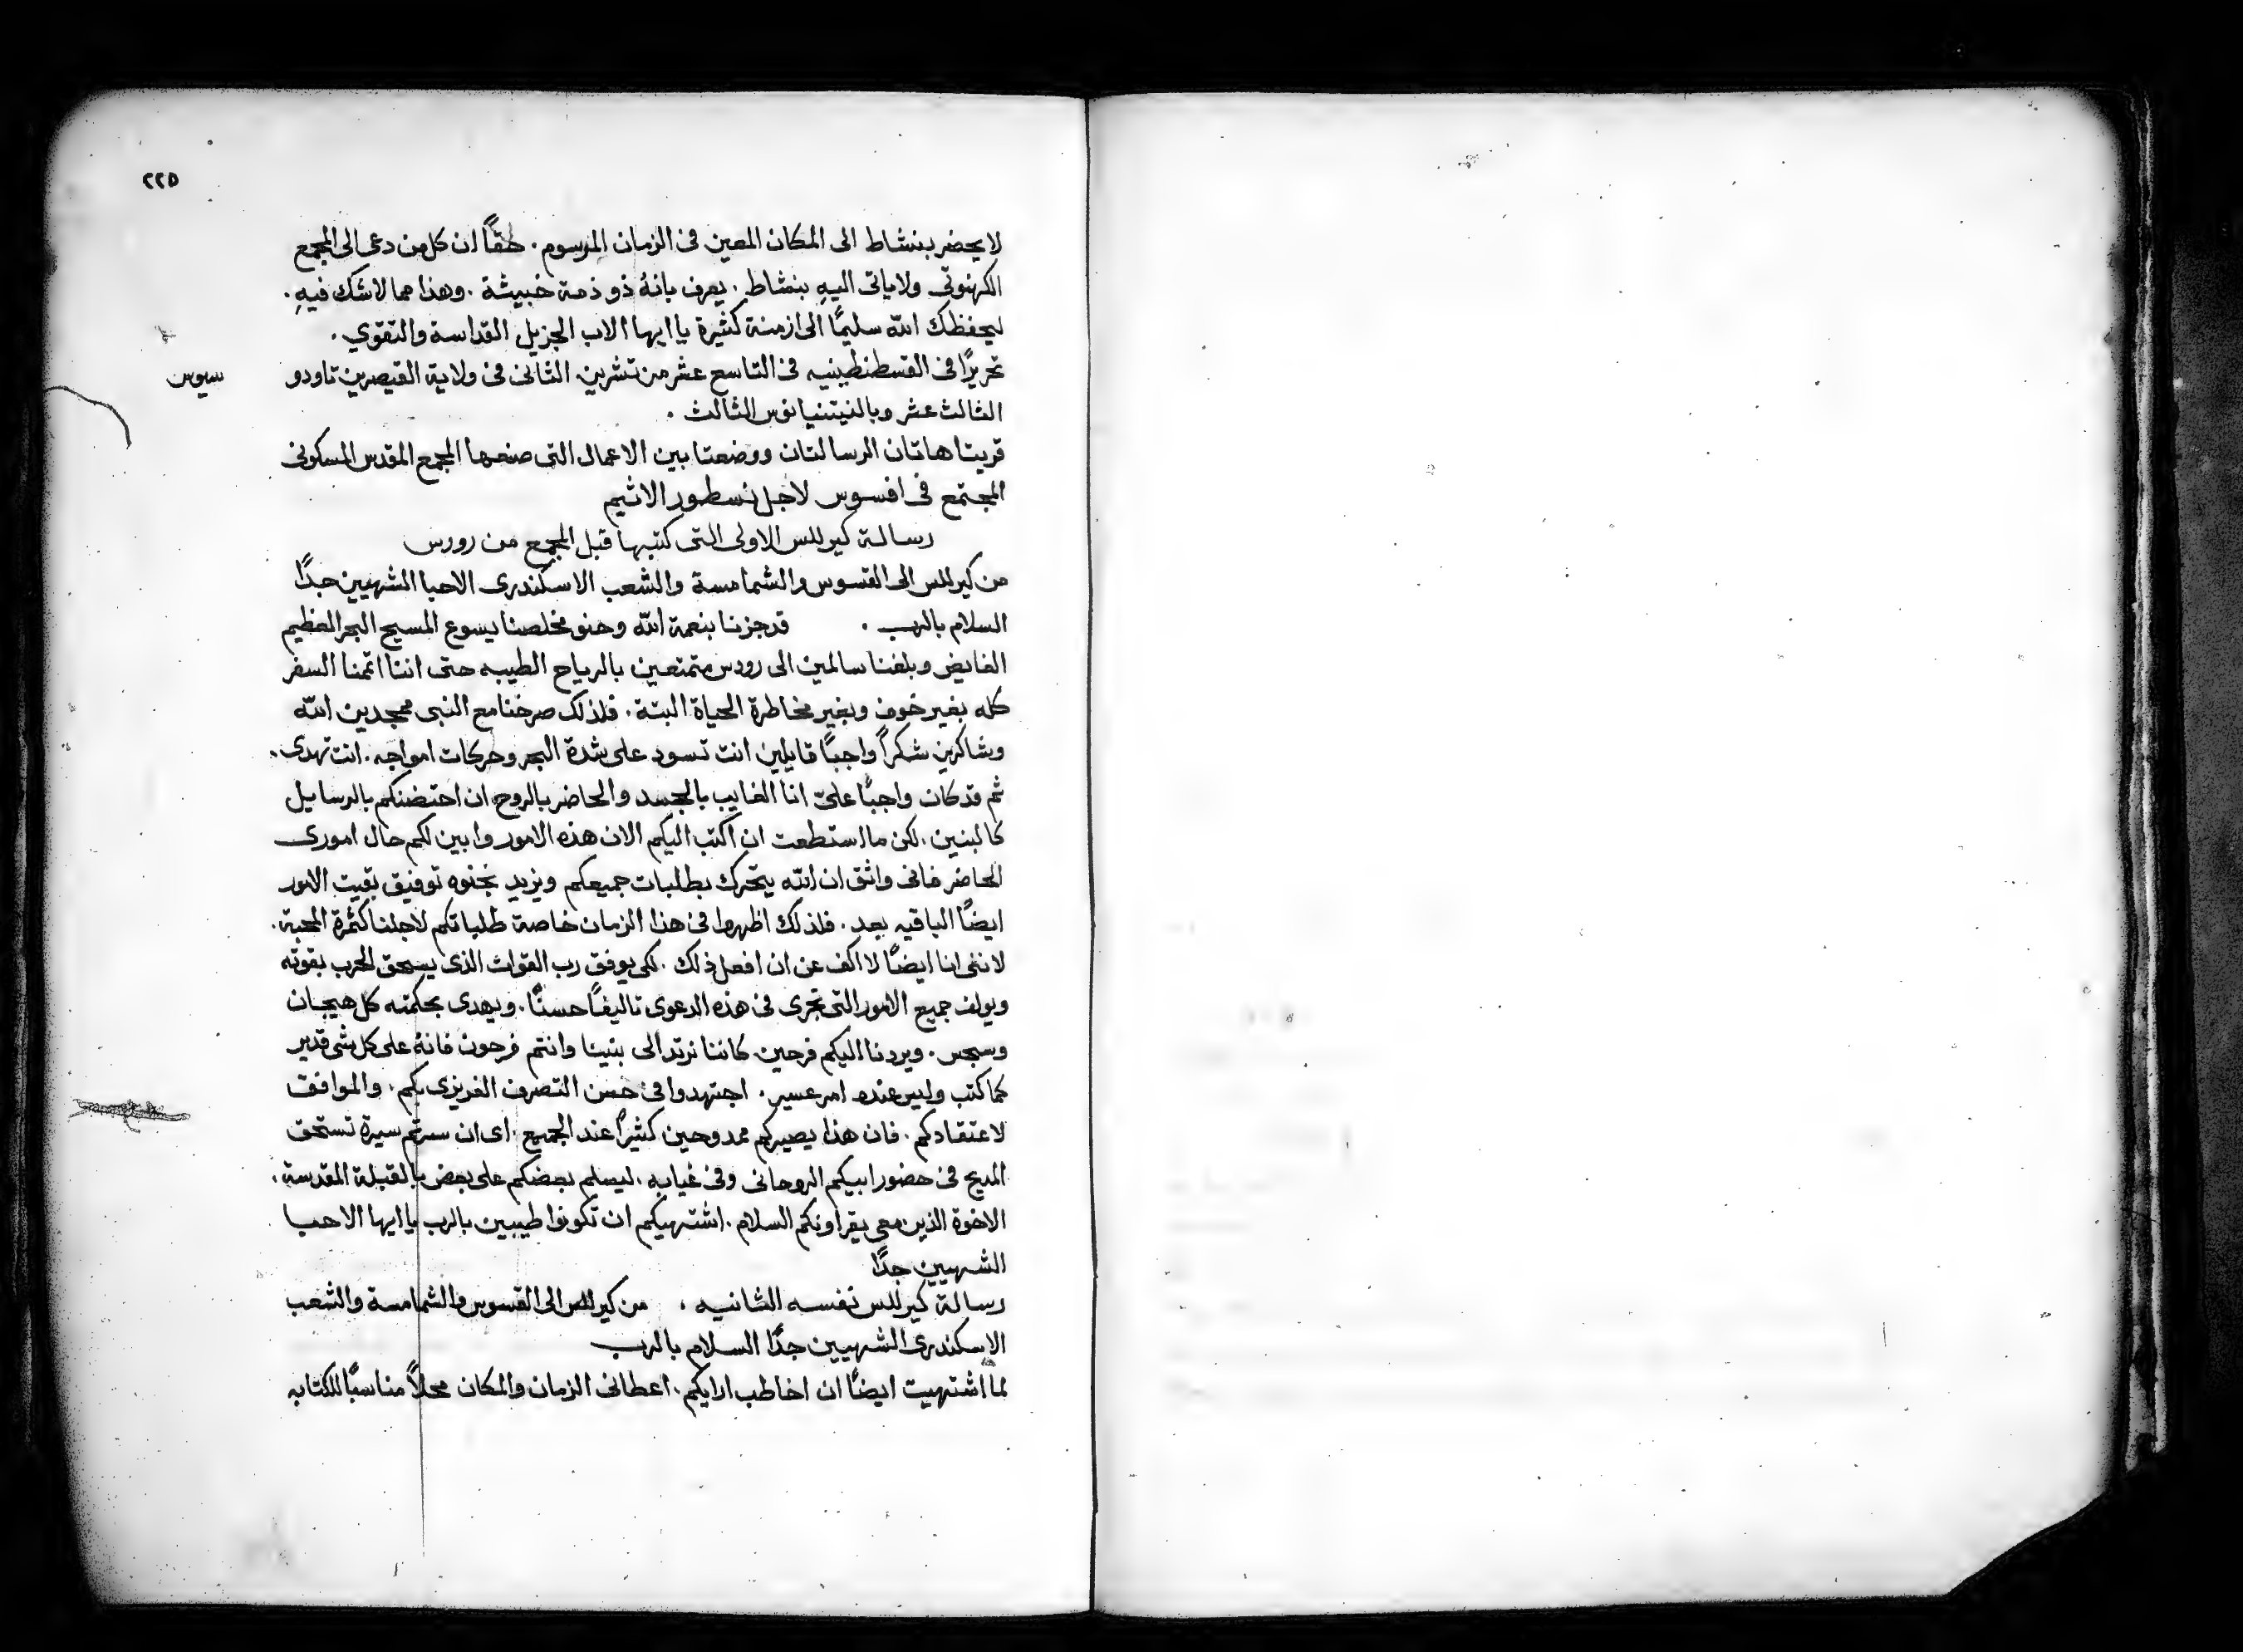 ٢٢٥
لا يحضر بنشاط الى المكان المعين فى الزمان المرسوم. حقًا ان كل من دعى الى المجمع
الكهنوتى ولا ياتى اليهِ بنشاط. يعرف بانهُ ذو ذمة خبيثة. وهذا مما لا شك فيهِ.
ليحفظك اللّه سليمًا الى ازمنة كثيرة يا ايها الاب الجزيل القداسة والتقوي.
تحريرًا فى القسطنطينيه فى التاسع عشر من تشرين الثانى فى ولاية القيصرين تاودو
سيوس
الثالث عشر وبالنيتنيانوس الثالث.
قريتا هاتان الرسالتان ووضعتا بين الاعمال التى صنعها المجمع المقدس المسكونى
المجتمع فى افسوس لاجل نسطور الاثيم
رسالة كيرللس الاولى التى كتبها قبل المجمع من رورس
من كيرللس الى القسوس والشمامسة والشعب الاسكندرى الاحبا الشهيين جدًا
السلام بالرب. قد جزنا بنعمة اللّه وحنو مخلصنا يسوع المسيح البحر العظيم
الفايض وبلغنا سالمين الى رودس متمتعين بالرياح الطيبه حتى اننا اتمنا السفر
كله بغير خوف وبغير مخاطرة الحياة البتة. فلذلك صرخنا مع النبى ممجدين اللّه
وشاكرين شكرًا واجبًا قايلين انت تسود على شدة البحر وحركات امواجه. انت تهدى.
ثم قد كان واجبًا علىّ انا الغايب بالجسد والحاضر بالروح ان احتضنكم بالرسايل
كالبنين. لكن ما استطعت ان اكتب اليكم الان هذه الامور وابين لكم حال امورى
الحاضر فانى واثق ان اللّه يتحرك بطلبات جميعكم ويزيد بحنوه توفيق بقيت الامور
ايضًا الباقيه بعد. فلذلك اظهروا فى هذا الزمان خاصة طلباتكم لاجلنا كثمرة المحبة.
لاننى انا ايضًا لا اكف عن ان افعل ذلك. لكى يوفق رب القوات الذى يسحق الحرب بقوته
ويولف جميع الامور التى تجرى فى هذه الدعوى تاليفًا حسنًا. ويهدى بحكمته كل هيجان
وسجس. ويردنا اليكم فرحين كاننا نرتد الى بنينا وانتم فرحون فانهُ على كل شى قدير
كما كتب وليس عنده امر عسير. اجتهدوا فى حسن التصرف الغريزى بكم. والموافق
لاعتقادكم. فان هذا يصيركم ممدوحين كثيرًا عند الجميع. اى ان سرتم سيرة تستحق
المديح فى حضور ابيكم الروحانى وفى غيابه. ليسلم بعضكم على بعض بالقبلة المقدسة.
الاخوة الذين معى يقراونكم السلام. اشتهيكم ان تكونوا طيبين بالرب يا ايها الاحبا
الشهيين جدًا
رسالة كيرللس نفسه الثانيه. من كيرللس الى القسوس والشمامسة والشعب
الاسكندرى الشهيين جدًا السلام بالرب
لما اشتهيت ايضًا ان اخاطب ارايكم. اعطانى الزمان والمكان محلاً مناسبًا للكتابه